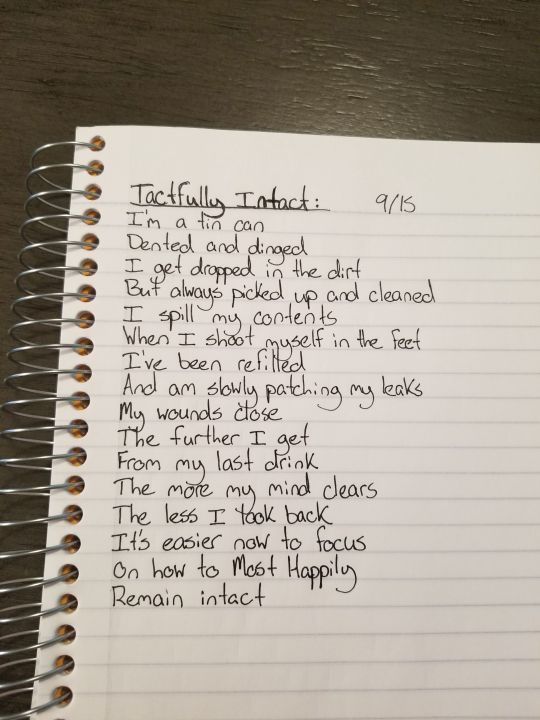 Tactfully Intact: 9/15
I'm a tin can
Dented and dinged
I get dropped in the dirt
But always picked up and cleaned
I spill my contents
When I shoot myself in the feet
I've been refilled
And am slowly patching my leaks
My wounds close
The further I get
From my last drink
The more my mind clears
The less I look back
It's easier now to focus
On how to Most Happily
Remain intact